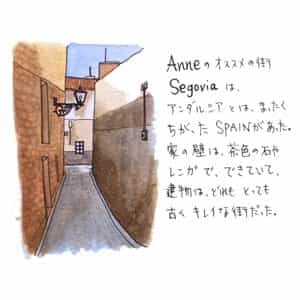 Anneのオススメの街
Segovia は、
アンダルシアとは、まったく
ちがったSPAINがあった。
家の壁は、茶色の石や
レンガで、できていて、
建物は、どれも とっても
古く キレイな街だった。